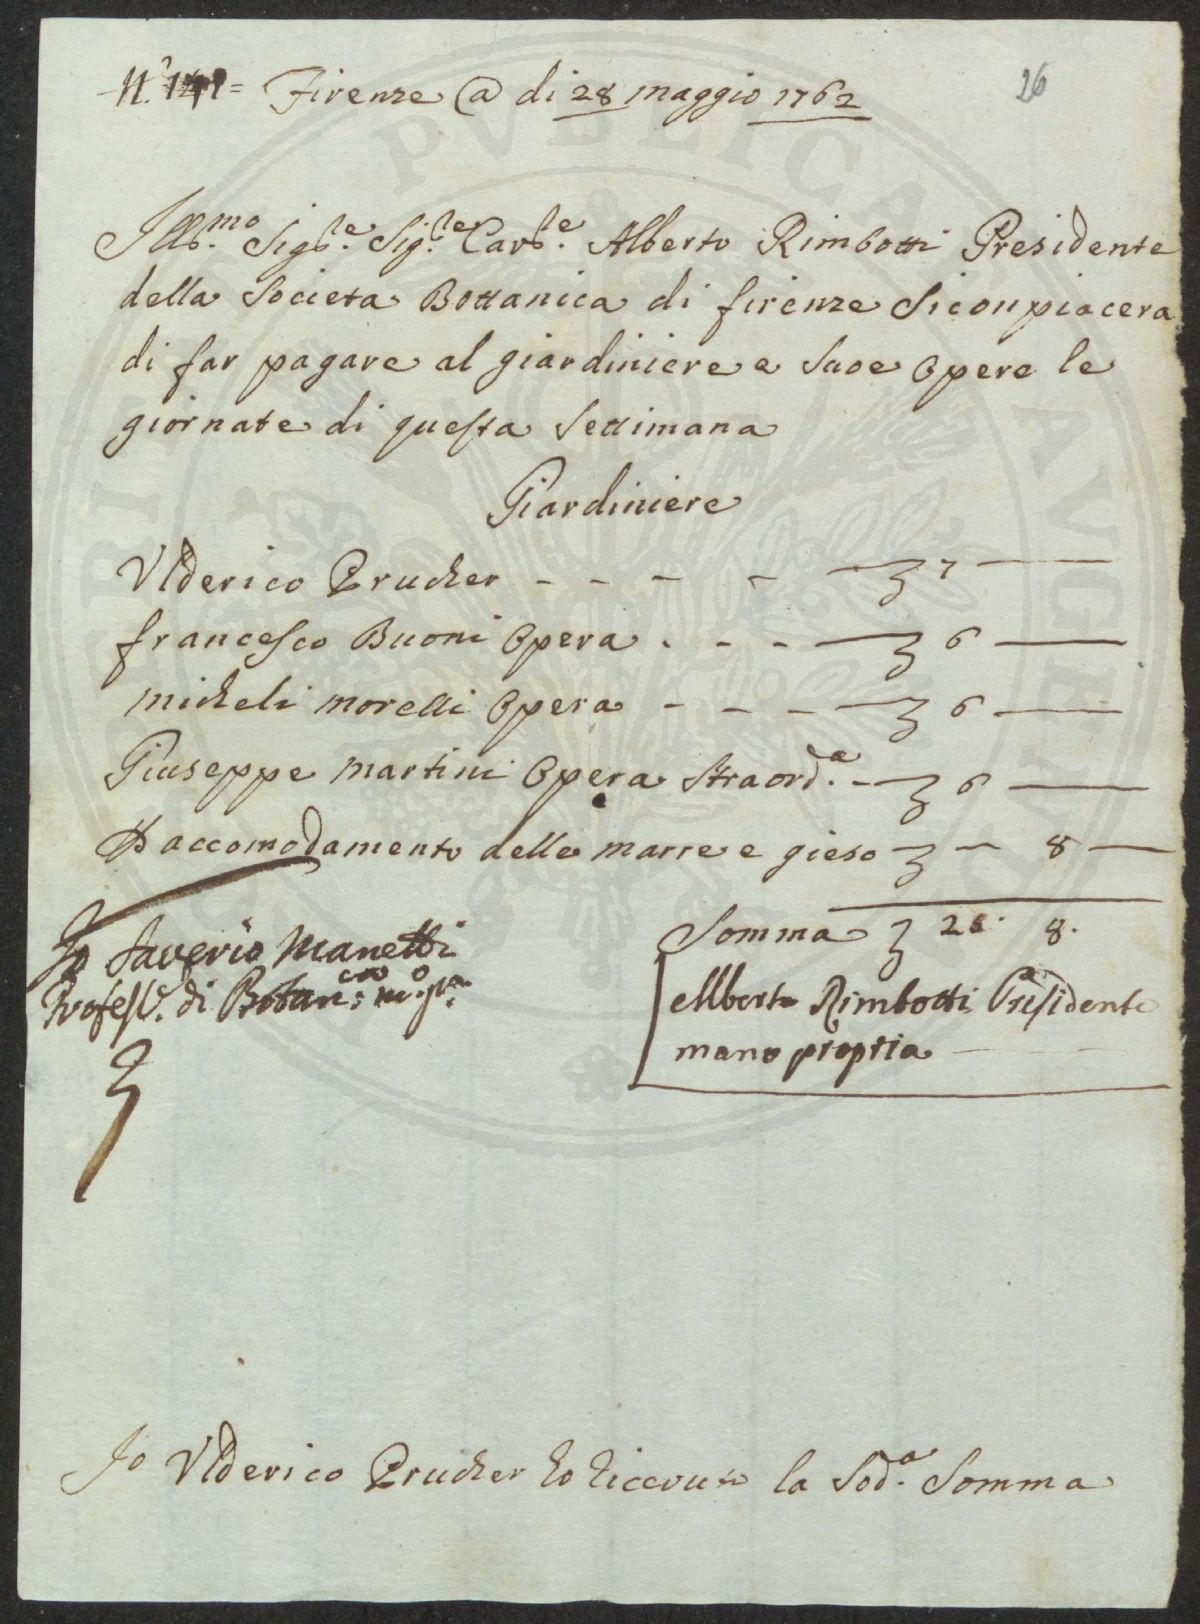 N.° 141 = Firenze @ di 28 maggio 1762
26
Ill.mo Sig.re Sig.re Cav.re Alberto Rimbotti Presidente
della Societa Bottanica di firenze Si conpiacera
di far pagare al giardiniere e Suoe Opere le
giornate di questa Settimana
Giardiniere
Vlderico Prucher - - - - 7 —
francesco Buoni Opera . - - 6 —
micheli morelli Opera - - - 6 —
Giuseppe martini Opera Straord.a - 6 —
P accomodamento delle marre e gieso — 8 —
Somma 25. 8.
Io Saverio Manetti
Profess.e di Botan.ca m.o p.a
Alberto Rimbotti Presidente
mano propria
Io Vlderico Prucher ho ricevuto la Sod.a Somma
PVBLICA